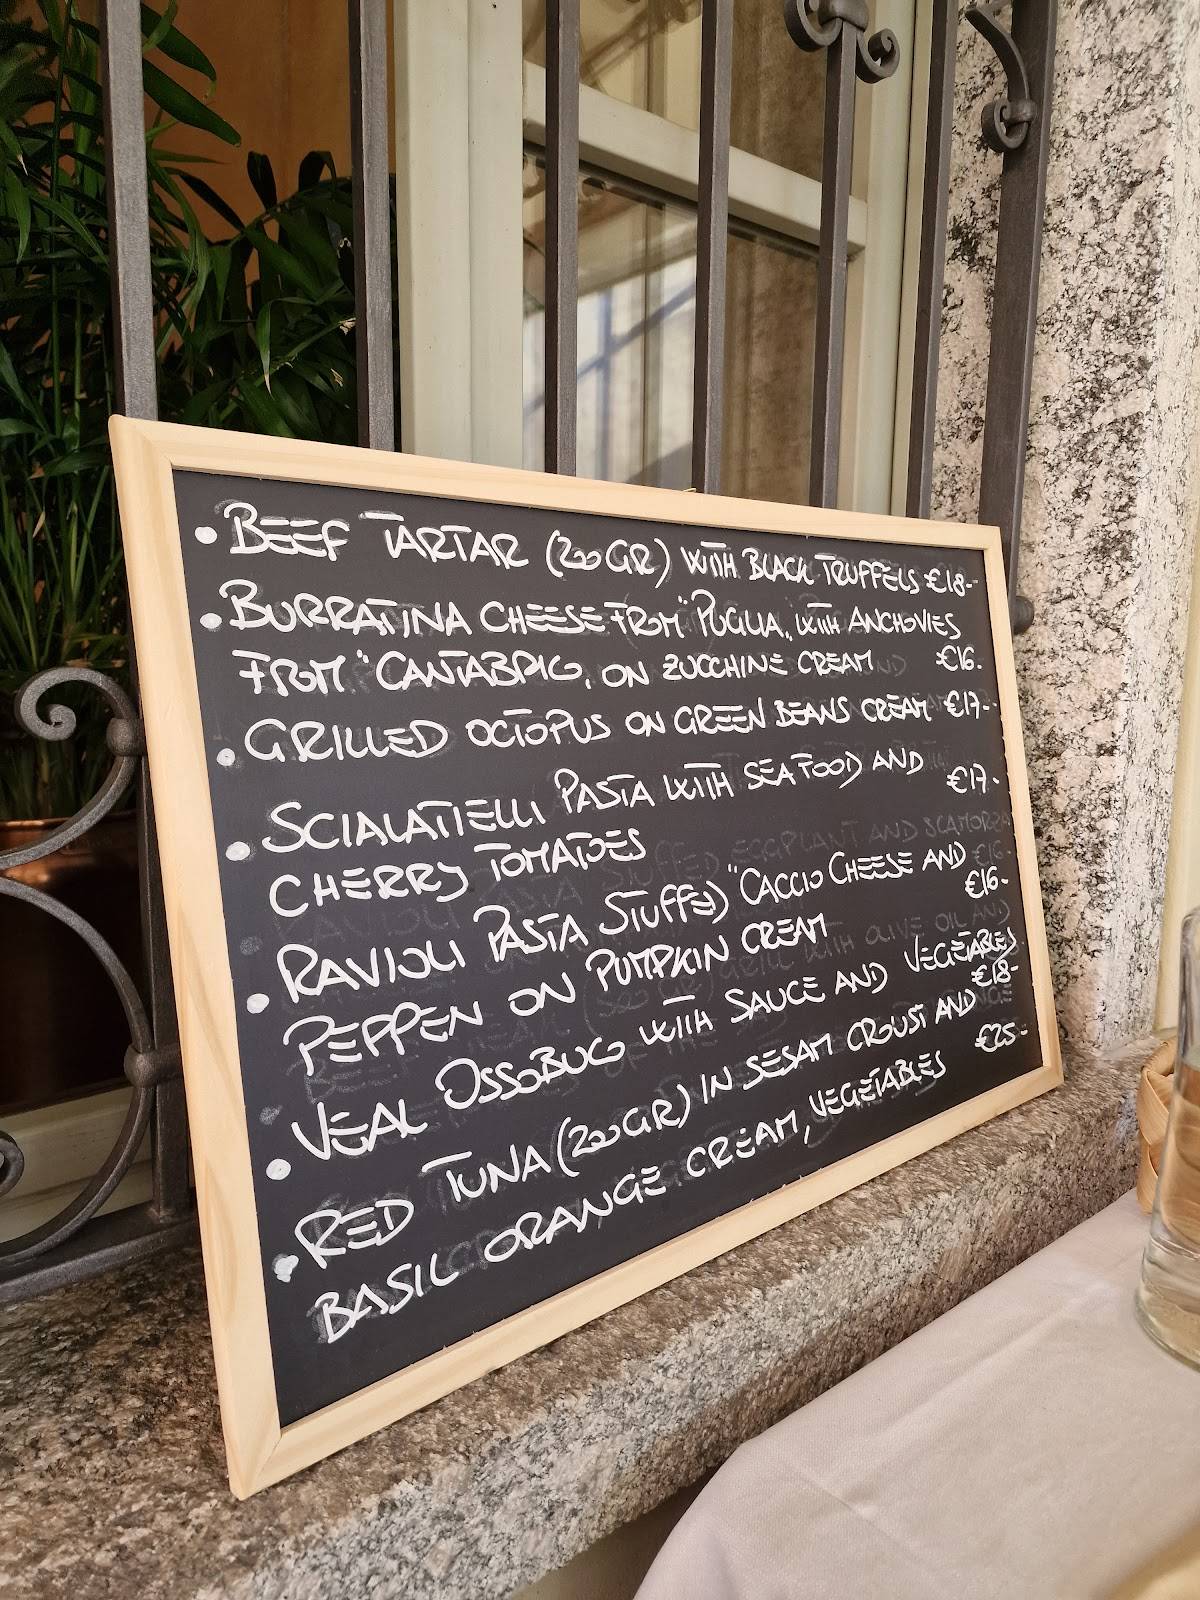 • BEEF TARTAR (200GR) WITH BLACK TRUFFELS €18.-
• BURRATINA CHEESE FROM "PUGLIA" WITH ANCHOVIES
FROM "CANTABRIC", ON ZUCCHINE CREAM €16.
• GRILLED OCTOPUS ON GREEN BEANS CREAM €17.-
• SCIALATIELLI PASTA WITH SEAFOOD AND
CHERRY TOMATOES €17.-
• RAVIOLI PASTA STUFFED "CACCIO CHEESE AND
PEPPEN ON PUMPKIN CREAM €16.-
• VEAL OSSOBUCO WITH SAUCE AND VEGETABLES €18.-
• RED TUNA (200GR) IN SESAM CROUST AND
BASIL ORANGE CREAM, VEGETABLES €25.-